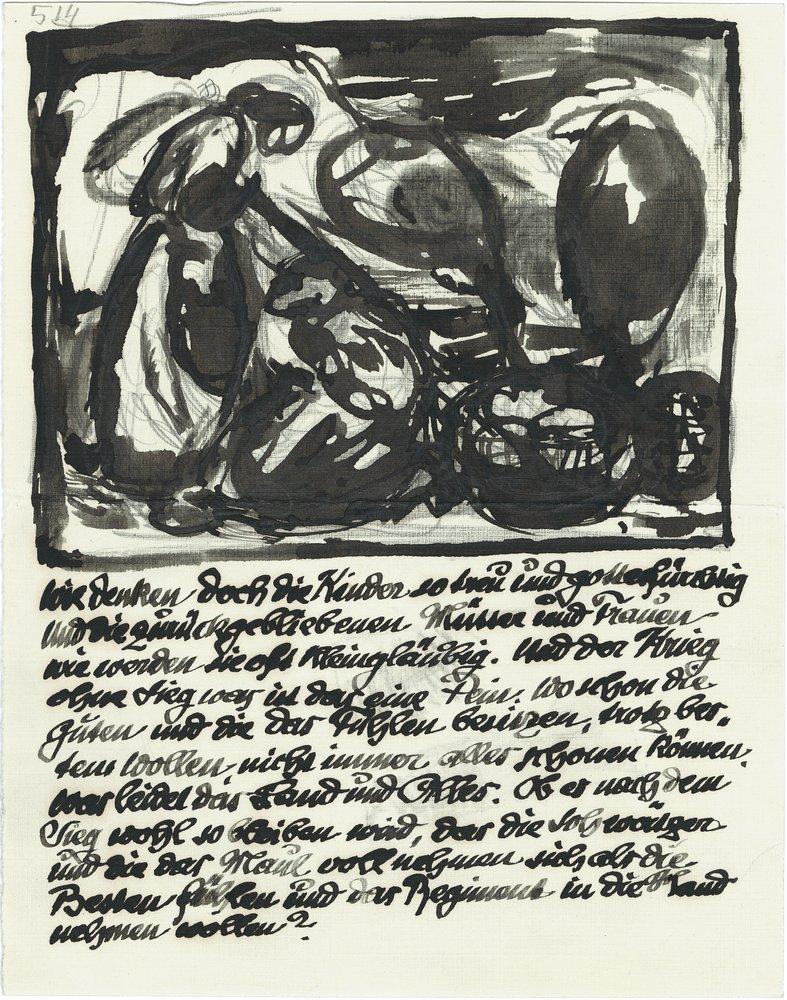 514
wie denken doch die Kinder so treu und gottesfürchtig
Und die zurückgebliebenen Mütter und Frauen
wie werden sie oft kleingläubig. Und der Krieg
ohne Sieg was ist das eine Pein. Wo schon die
Guten und die das Fühlen besitzen, trotz bes-
tem Wollen nicht immer alles schonen können.
was leidet das Land und Alles. Ob es nach dem
Sieg wohl so bleiben wird, das die
und die das Maul voll nehmen sich als die
Besten fühlen und das Regiment in die Hand
nehmen wollen?